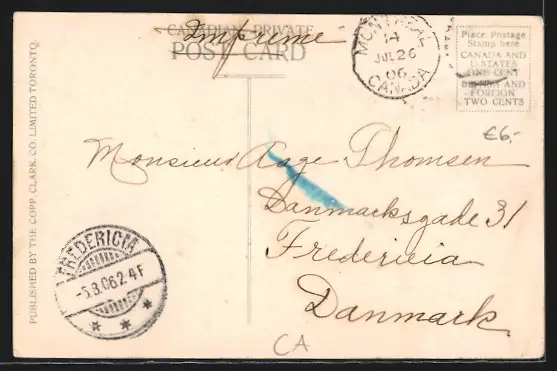 CANADIAN PRIVATE
Imprimé
POST CARD
MONTREAL
14
JUL 26
06
CANADA
Place Postage
Stamp here
CANADA AND
U STATES
ONE CENT
AND
FOREIGN
TWO CENTS
€6,-
Monsieur Aage Thomsen
Danmarksgade 31
Fredericia
Danmark
FREDERICIA
-5.8.06.2-4F
* * *
CA
PUBLISHED BY THE COPP, CLARK, CO. LIMITED TORONTO.